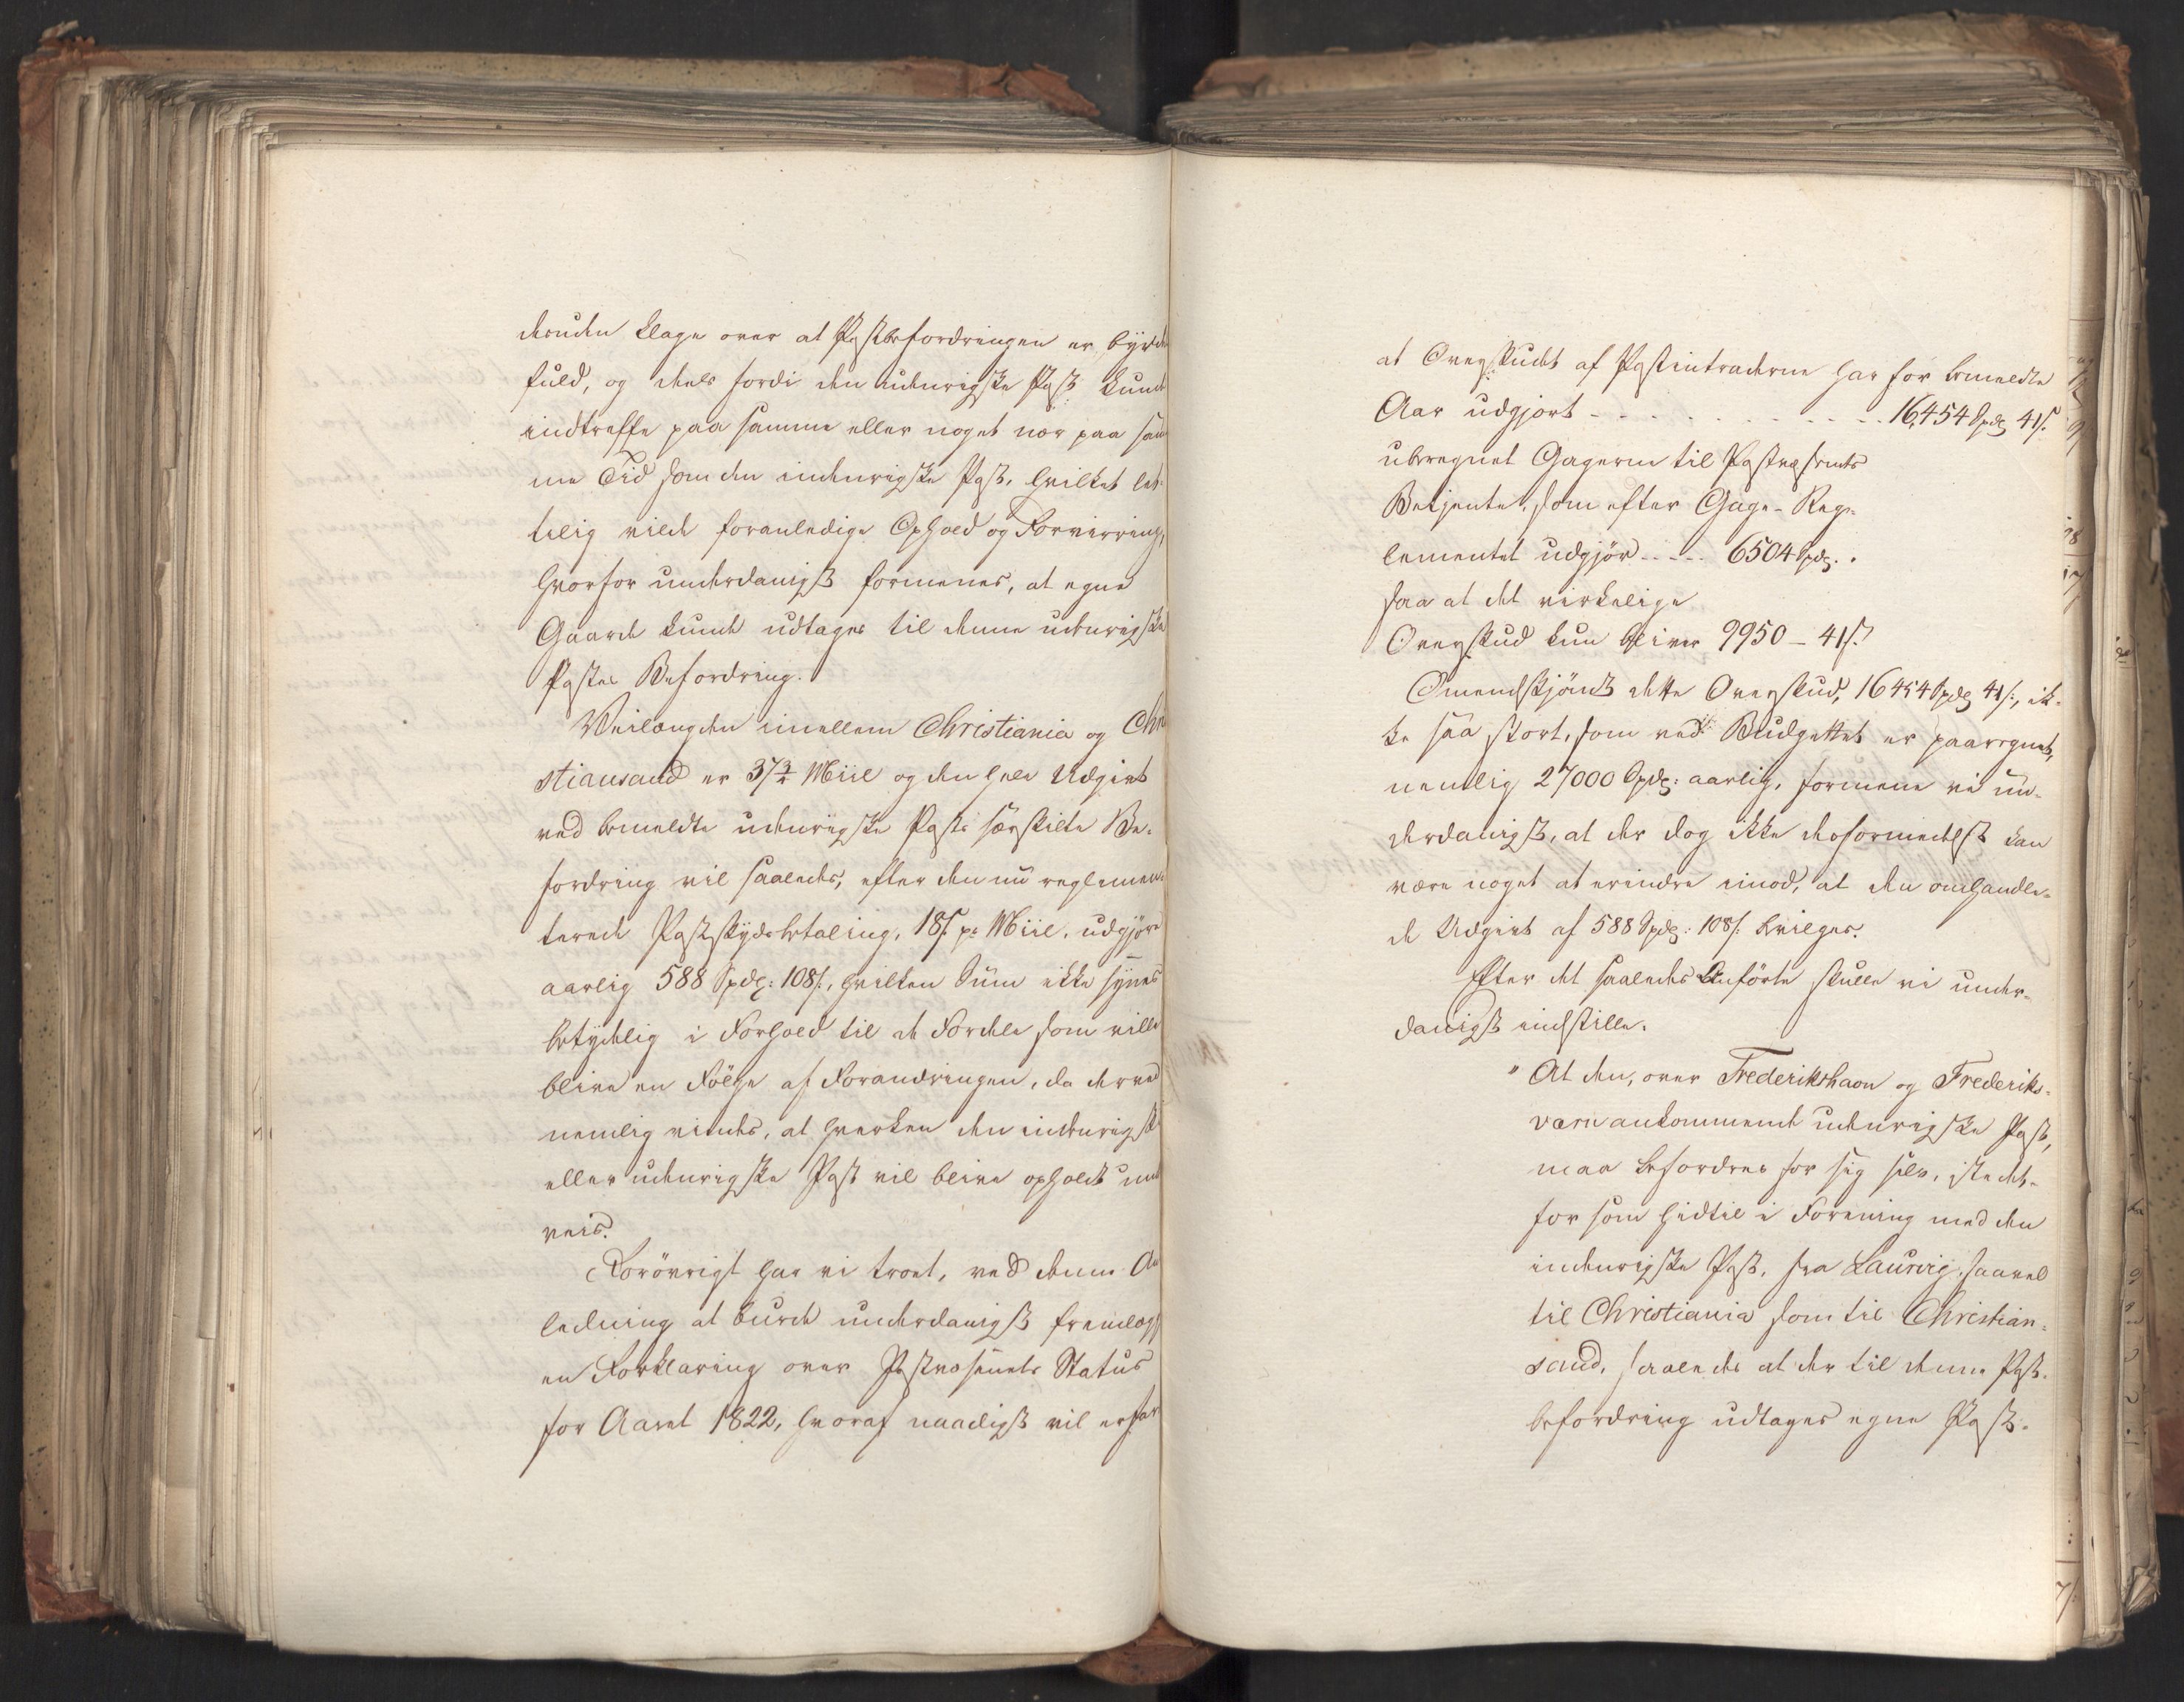 desuden klage over at Postbefordringen er byrde
fuld, og dels fordi den udenrigske Post kunde
indtreffe paa samme eller noget nær paa sam
me Tid som den indenrigske Post, hvilket let-
telig vilde foranledige Ophold og Forvirring,
hvorfor underdanigst formenes, at egne
Gaarde kunde udtages til denne udenrigske
Postes Befordring.
Veilængden imellem Christiania og Chri
stiansand er 37 3/4 Miil og den hele Udgivt
ved bemeldte udenrigske Posts særskilte Be-
fordring vil saaledes, efter den nu reglemen-
terede Postskydsbetaling, 18 s. pr Miil, udgjøre
aarlig 588 Spdlr: 108 s., hvilken Sum ikke synes
betydelig i Forhold til de Fordele som ville
blive en Følge af Forandringen, da derved
nemlig vindes, at hverken den indenrigske
eller udenrigske Post vil blive opholdt und
veis.
Forøvrigt har vi troet, ved denne An
ledning at burde underdanigst fremlægge
en Forklaring over Postvæsenets Status
for Aaret 1822, hvoraf naadigst vil erfar
at Overskudet af Postintraderne har for bemeldte
Aar udgjort - - - - - - - - - - - 16,454 Spdlr 41 s.
uberegnet Gagerne til Postvæsenets
Betjente, som efter Gage-Reg-
lementet udgjør - - - - 6504 Spdlr.
saa at det virkelige
Overskud kun bliver 9950 - 41 s.
Omendskjøndt dette Overskud, 16454 Spdlr 41 s., ik-
ke saa stort, som ved Budgettet er paaregnet,
nemlig 27000 Spdlr: aarlig, formene vi un-
derdanigst, at der dog ikke desformedelst kan
være noget at erindre imod, at den omhandle-
de Udgivt af 588 Spdlr: 108 s. bevilges.
Efter det saaledes Anførte skulle vi under-
danigst indstille.
" At den, over Frederikshavn og Frederiks-
værn ankommende udenrigske Post,
maa befordres for sig selv, istedet-
for som hidtil i Forening med den
indenrigske Post, fra Laurvig, saavel
til Christiania som til Christian-
sand, saaledes at der til denne Post-
befordring udtages egne Post-